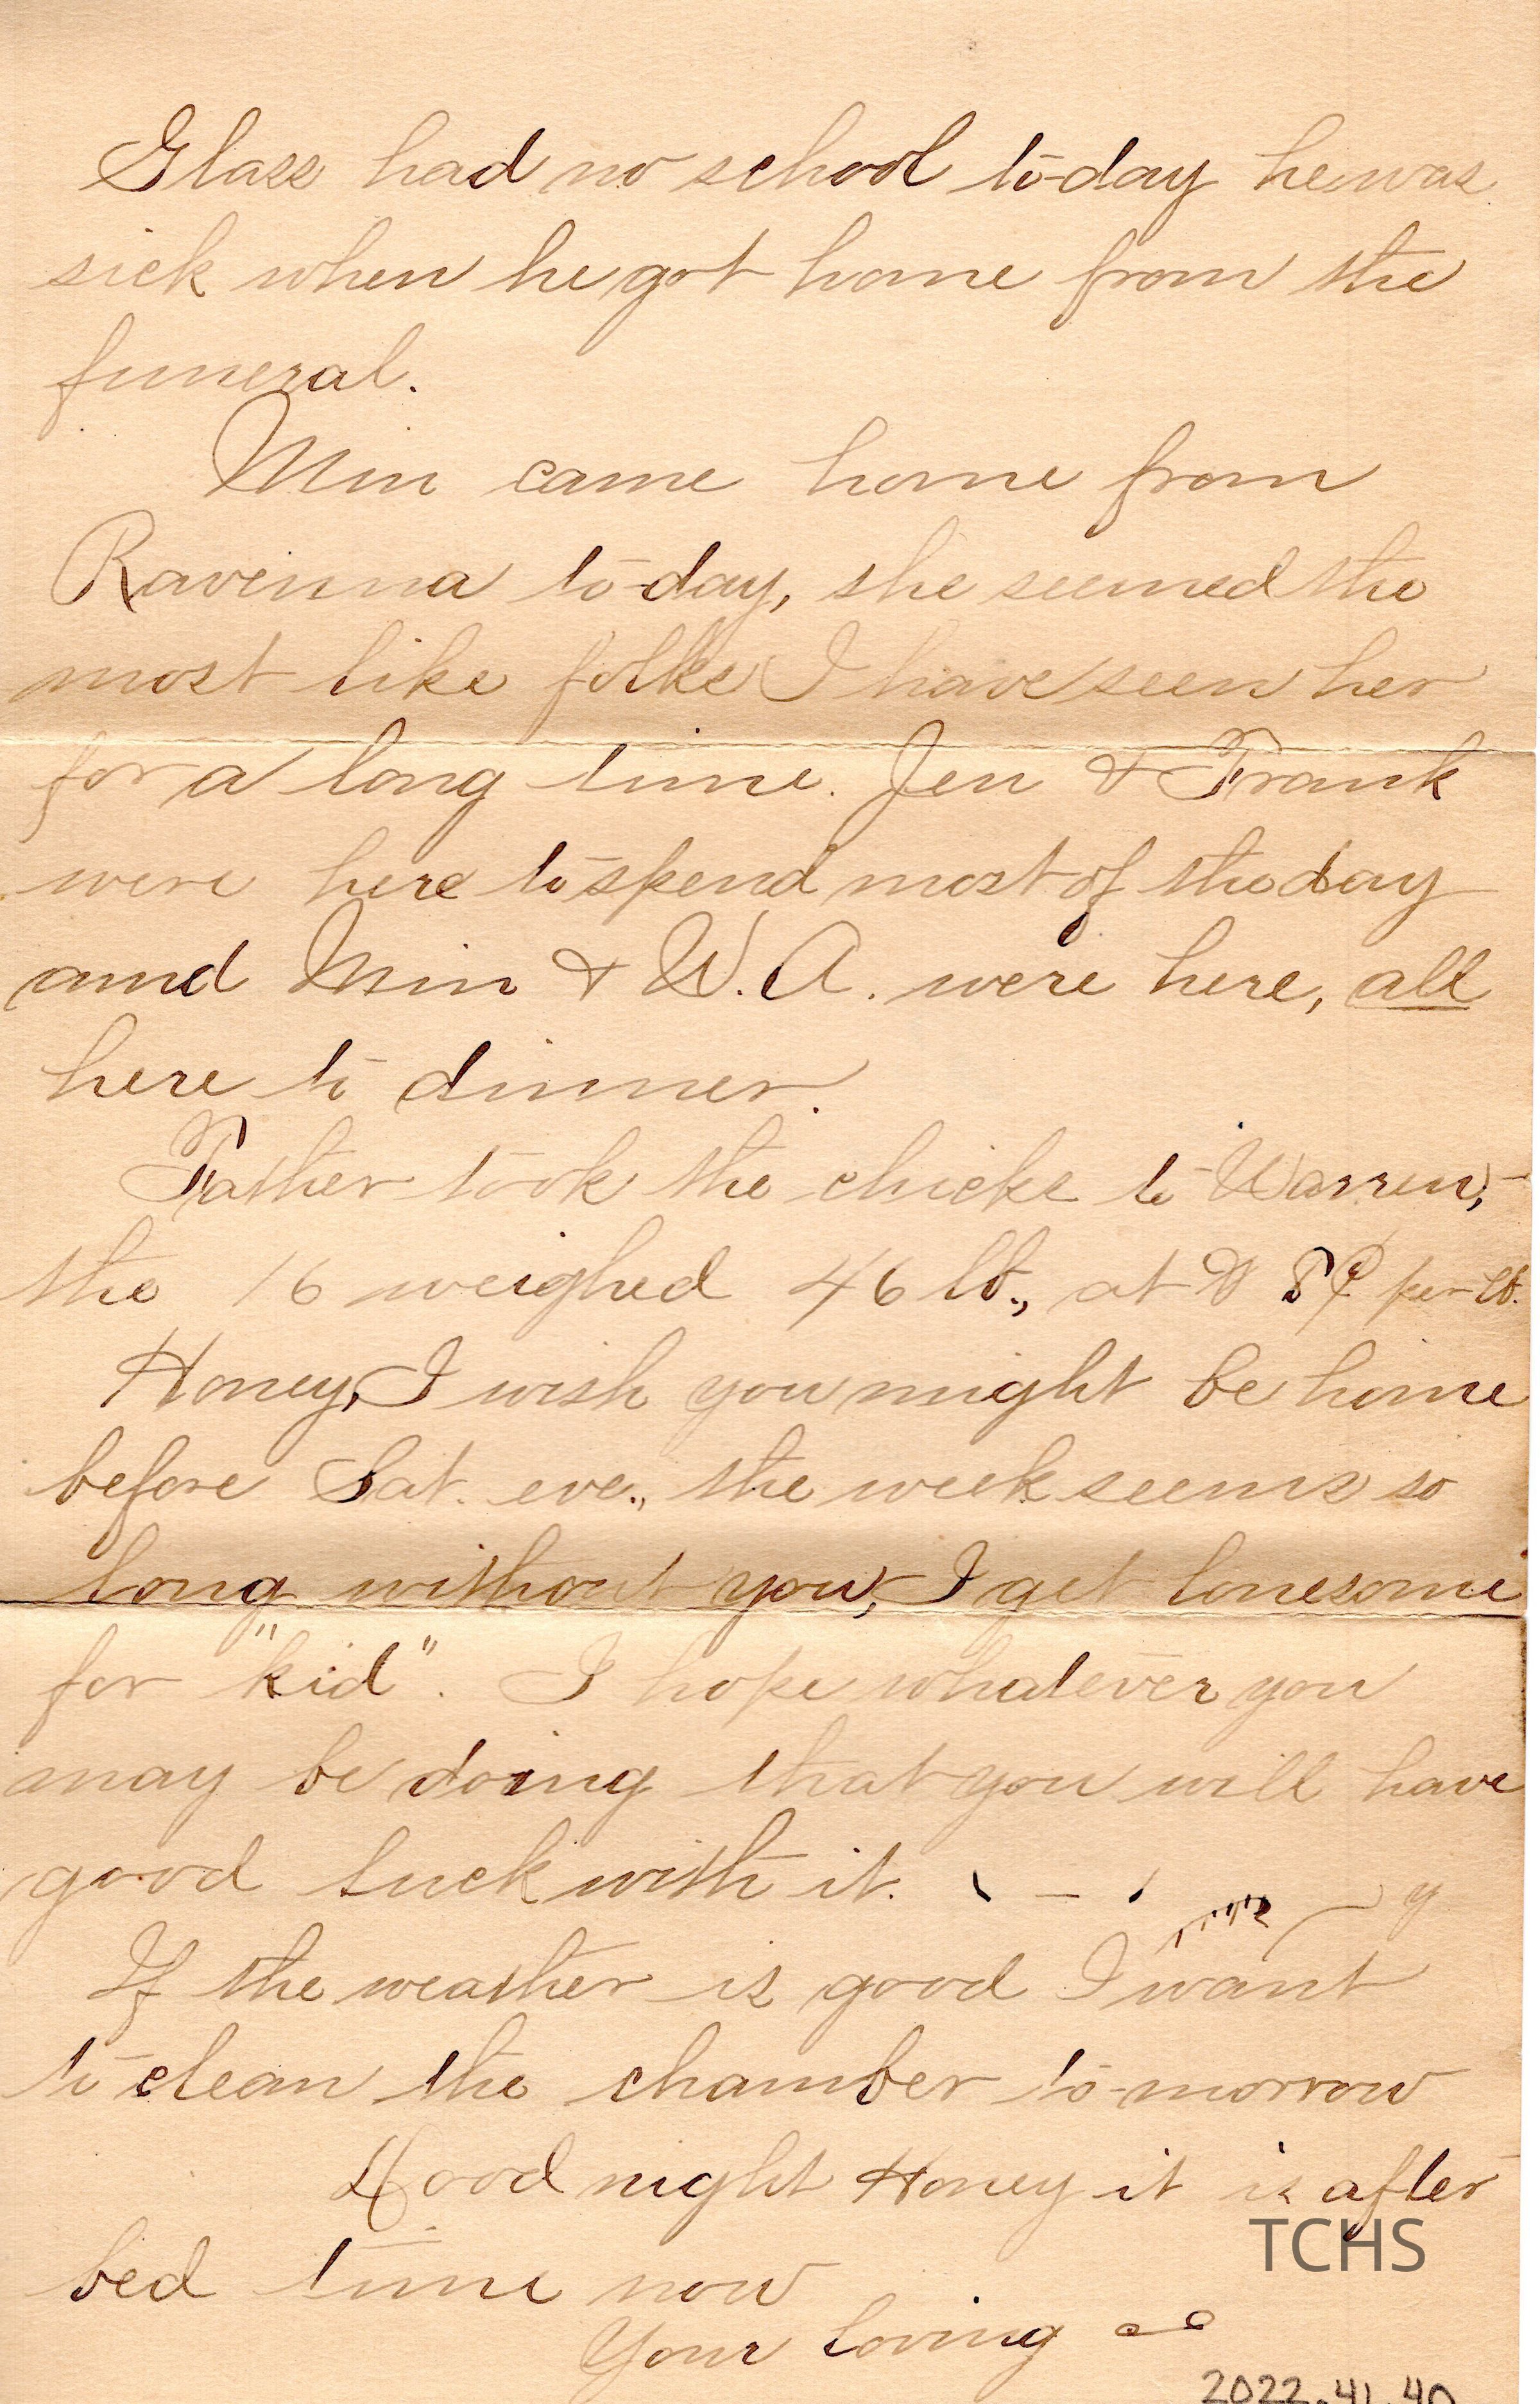 Glass had no school to-day he was
sick when he got home from the
funeral.
Min came home from
Ravenna to-day, she seemed the
most like folks I have seen her
for a long time. Jen & Frank
were here to spend most of the day
and Min & W. A. were here, all
here to dinner.
Father took the chicks to Warren,
the 16 weighed 46 lb., at 8¢ per lb.
Honey, I wish you might be home
before Sat. eve., the week seems so
long without you, I get lonesome
for "kid". I hope whatever you
may be doing that you will have
good luck with it.
If the weather is good I want
to clean the chamber to-morrow
Good night Honey it is after
bed time now
Your loving
TCHS
2022.41.40